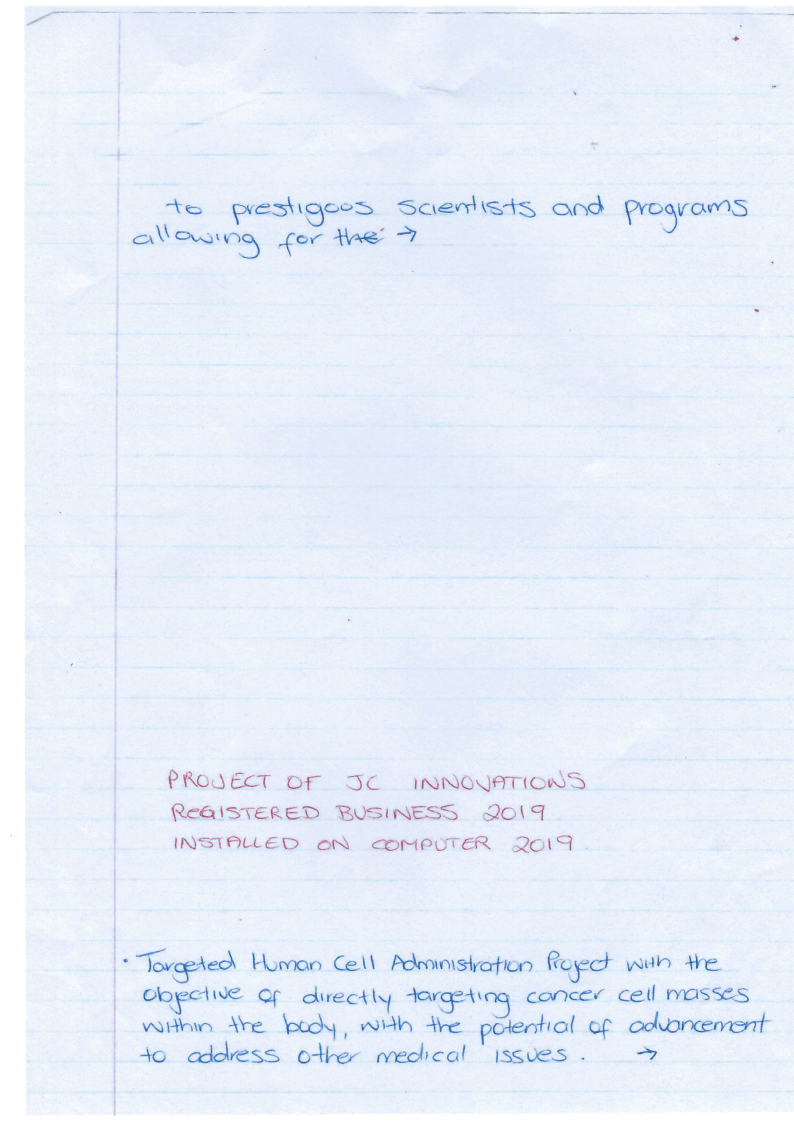 to prestigous scientists and programs
allowing for the →
PROJECT OF JC INNOVATIONS
REGISTERED BUSINESS 2019
INSTALLED ON COMPUTER 2019.
• Targeted Human Cell Administration Project with the
objective of directly targeting cancer cell masses
within the body, with the potential of advancement
to address other medical issues. →